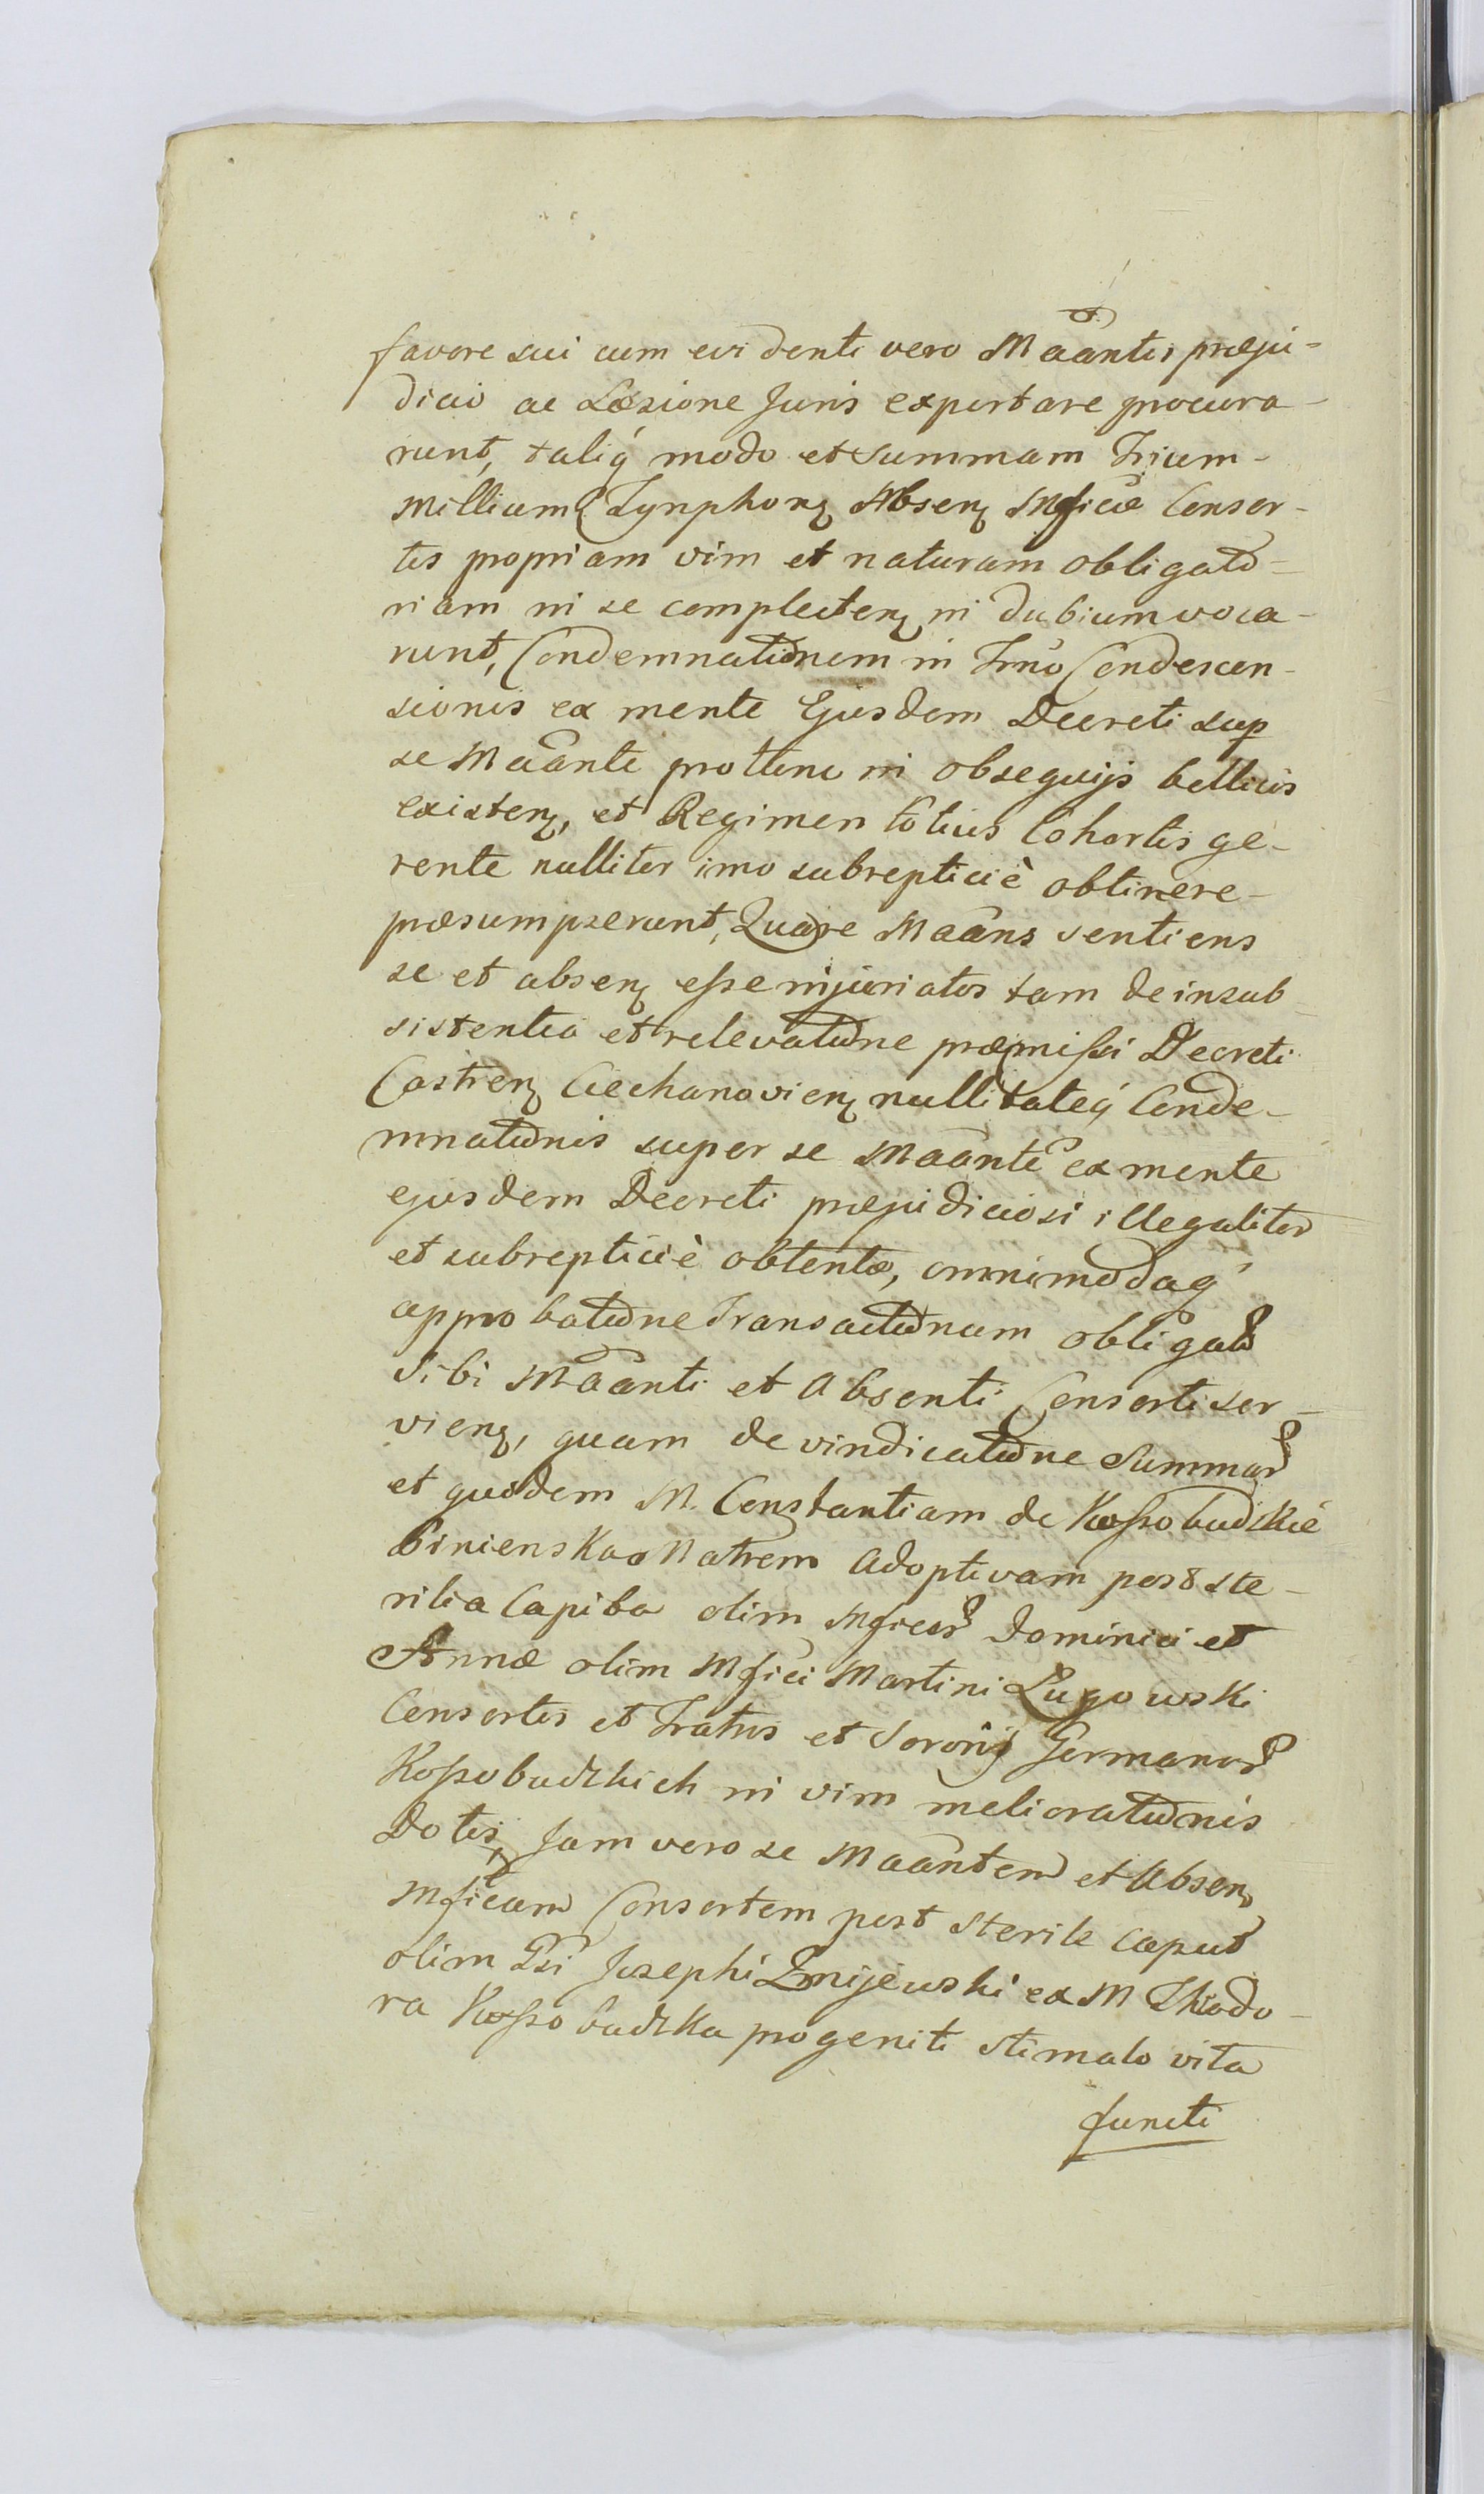 favore sui cum evidenti vero Maantis præju-
dicio ac Læsione Juris exportare procura-
runt, taliq́ modo et Summam Trium-
Millium Tynphorꝫ Absenꝫ Mficæ Consor-
tis propriam vim et naturam obligato-
riam in se complectenꝫ in dubium voca-
runt, Condemnationem in Trno Condescen-
sionis ex mente Ejusdem Decreti sup
se Maante protunc in obsequijs bellicis
existenꝫ, et Regimen totius Cohortis ge-
rente nulliter imo subrepticiè obtinere-
præsumpserunt, Quare Maans sentiens
se et absenꝫ eſse injuriatos tam de insub-
sistentia et relevatione præmiſsi Decreti
Castrenꝫ Ciechanovienꝫ nullitateq́ Conde-
mnationis super se Maante ex mente
ejusdem Decreti præjudiciosi illegaliter
et subrepticiè obtentæ, omnimodaq́
approbatione Transactionum obligato
Sibi Maanti et Absenti Consorti ser-
vienꝫ, quam de vindicatione Summar
et quidem M. Constantiam de Koſsobudzkie
Binienska Matrem Adoptivam post ste-
rilia Capita olim Mficor Dominici et
Annæ olim Mfici Martini Lugowski
Consortis et Fratris et Sororis Germanor
Koſsobudzkich in vim meliorationis
Dotis, Jam vero se Maantem et Absenꝫ
Mficam Consortem post Sterile Caput
olim Gsi Josephi Zmijewski ex M Theodo-
ra Koſsobudzka progeniti Stimalo vita
functi